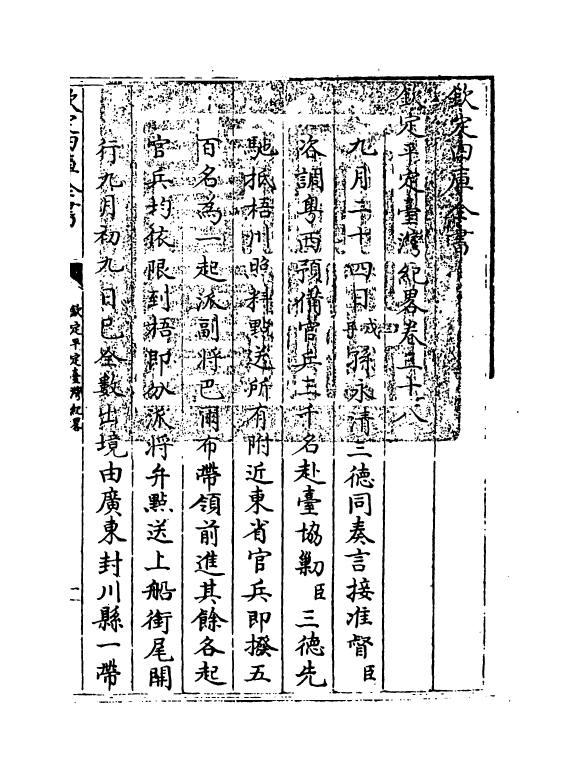 欽定四庫全書
欽定平定臺灣紀畧卷三十八
九月二十四日孫永清三德同奏言接准督臣
咨調粤西預備官兵三千名赴臺協勦臣三德先
馳抵梧州照料點送所有附近東省官兵即撥五
百名為一起派副將巴爾布帶領前進其餘各起
官兵均依限到梧即分派將弁點送上船銜尾開
行九月初九日已全數出境由廣東封川縣一帶
欽定四庫全書
欽定平定臺灣紀畧